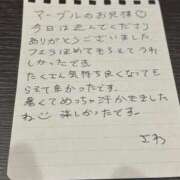 マーブルのお兄様☺
今日は遊んでくださり
ありがとうございました
フェラほめてもらえてうれ
しかったです
たくさん気持ち良くなっても
らえて良かったです。
暑くてめっちゃ汗かきました
ね 楽しかったです。
さわ